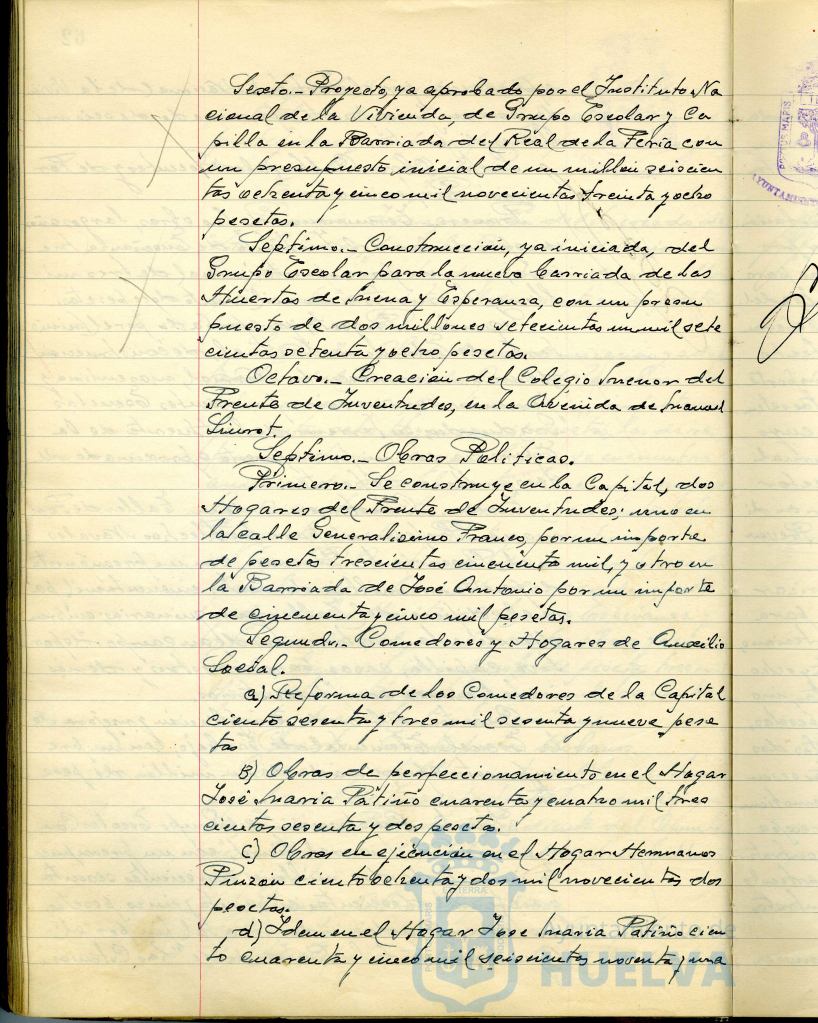 Sexto.- Proyecto, ya aprobado por el Instituto Na
cional de la Vivienda, de Grupo Escolar y Ca
pilla en la Barriada del Real de la Feria con
un presupuesto inicial de un millón seiscien
tas ochenta y cinco mil novecientas treinta y ocho
pesetas.
Septimo.- Construcción, ya iniciada, del
Grupo Escolar para la nueva barriada de las
Huertas de Mena y Esperanza, con un presu
puesto de dos millones setecientas un mil sete
cientas setenta y ocho pesetas.
Octavo.- Creación del Colegio Menor del
Frente de Juventudes, en la Avenida de Manuel
Siurot.
Septimo.- Obras Politicas.
Primero.- Se construye en la Capital, dos
Hogares del Frente de Juventudes; uno en
la calle Generalisimo Franco, por un importe
de pesetas trescientas cincuenta mil, y otro en
la Barriada de José Antonio por un importe
de cincuenta y cinco mil pesetas.
Segundo.- Comedores y Hogares de Auxilio
Social.
a) Reforma de los Comedores de la Capital
ciento sesenta y tres mil sesenta y nueve pese
tas
B) Obras de perfeccionamiento en el Hogar
José Maria Patiño cuarenta y cuatro mil tres
cientas sesenta y dos pesetas.
c) Obras en ejecución en el Hogar Hermanos
Pinzón ciento ochenta y dos mil novecientas dos
pesetas.
d) Idem en el Hogar José Maria Patiño cien
to cuarenta y cinco mil seiscientas noventa y una
HUELVA